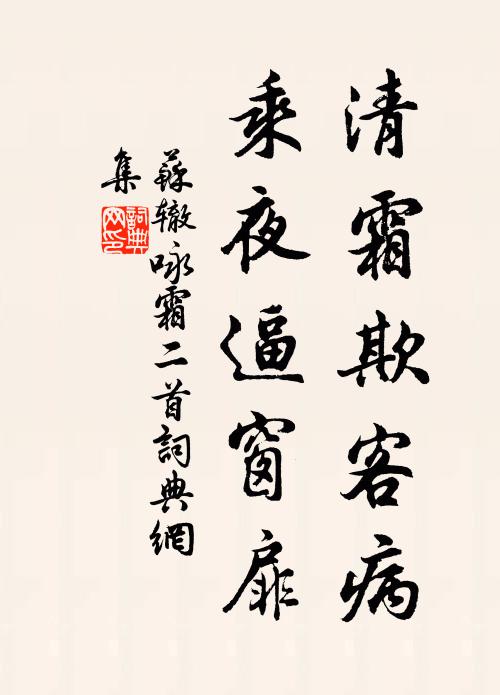 清霜欺客病
乘夜逼窗扉
蘇辙咏霜二首詞典網
集
詞典网印